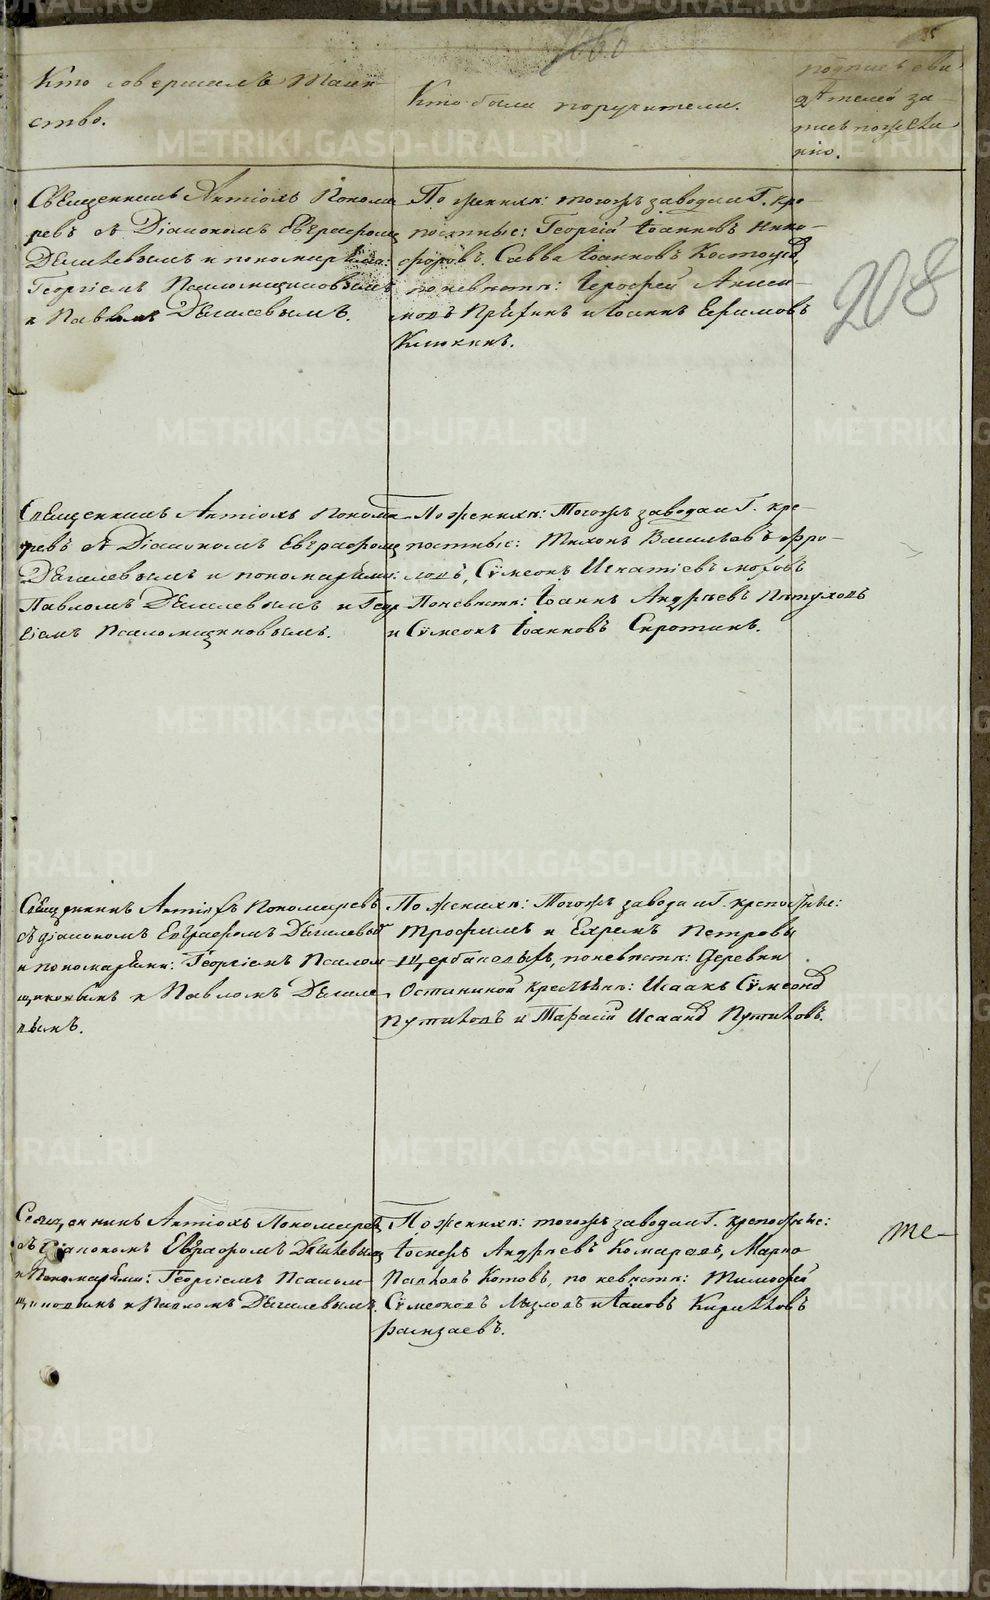 35
Кто совершалъ таин-
ство.
Кто были поручители.
подпись сви-
дѣтелей за-
пись по жела-
нію.
Священникъ Антіохъ Понома
ревъ съ Діакономъ Евграфомъ
Дягилевымъ и пономарями:
Георгіемъ Псаломщиковымъ
и Павломъ Дягилевымъ.
По женихѣ: тогожъ завода и Г. кре-
постные: Георгій Іоанновъ Ники-
форовъ, Савва Іоанновъ Костоусовъ,
по невѣстѣ: Іерофей
и Іоаннъ Ефимовъ
Клюкинъ.
208
Священникъ Антіохъ Понома
ревъ съ Діакономъ Евграфомъ
Дягилевымъ и пономарями:
Павломъ Дягилевымъ и Геор
гіемъ Псаломщиковымъ.
По женихѣ: Тогожъ завода и Г. кре-
постные: Тихонъ Васильевъ Фро-
ловъ, Сѵмеонъ Игнатіевъ
По невѣстѣ: Іоаннъ Андреевъ Пѣтуховъ
и Сѵмеонъ Іоанновъ Сиротинъ.
Священникъ Антіохъ Пономаревъ
съ діакономъ Евграфомъ Дягилевым
и пономарями: Георгіемъ Псалом-
щиковымъ и Павломъ Дягиле-
вымъ.
По женихѣ: Тогожъ завода и Г. крепостные:
Трофимъ и Ефремъ Петровы
Щербаковы, по невѣстѣ: Деревни
Останиной крестьяне: Исаакъ Сѵмеоновъ
Путиловъ и Тарасій Исааковъ Путиловъ.
Священникъ Антіохъ Пономаревъ
съ Діакономъ Евграфомъ Дягилевым
и Пономарями: Георгіемъ Псалом-
щиковымъ и Павломъ Дягилевымъ.
По женихѣ: тогожъ завода и Г. крепостные:
Іосифъ Андреевъ Комаровъ, Марко
Павловъ Котовъ, по невѣстѣ: Тимофей
Сѵмеоновъ и Іаковъ Кириловъ
те-
METRIKI.GASO-URAL.RU